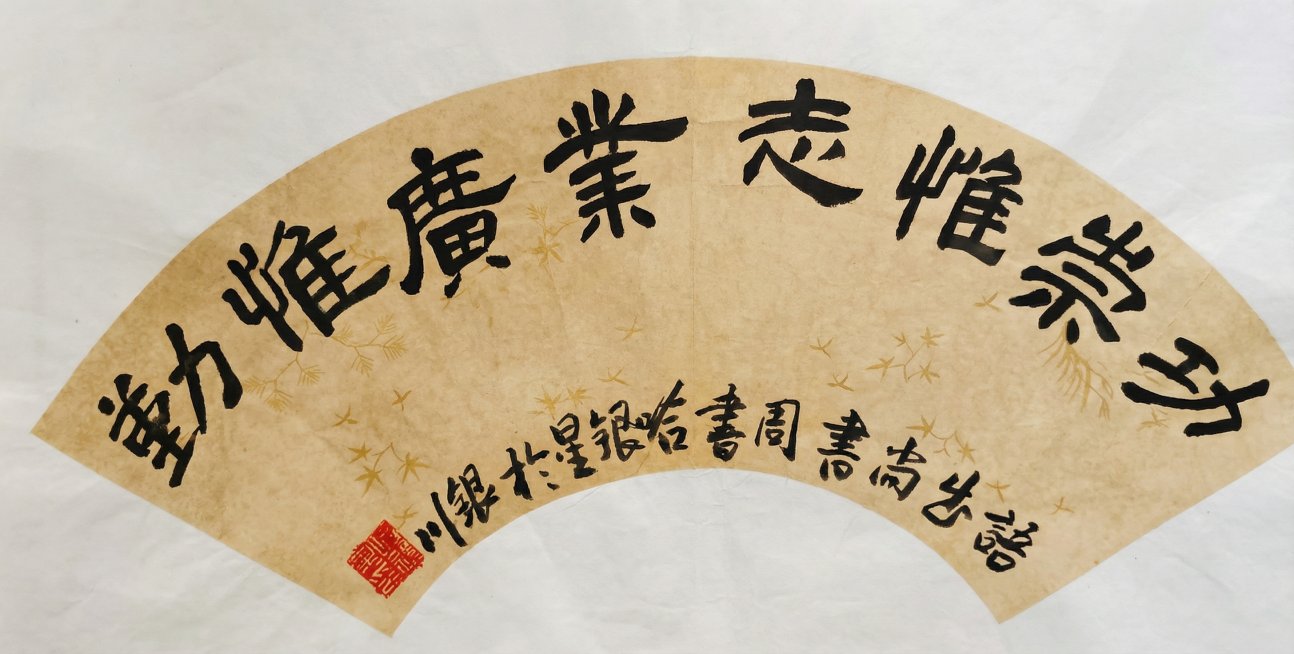 功崇惟志業廣惟勤
語出尚書周書哈銀星於銀川